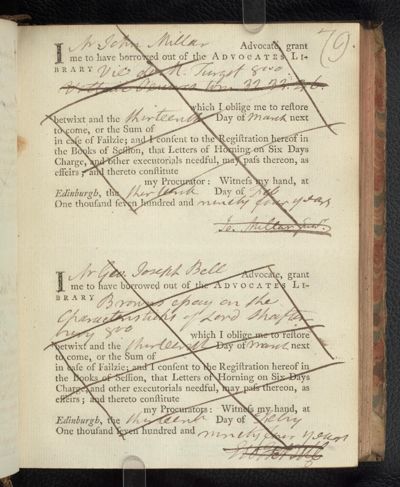 79.
I Mr John Millar Advocate, grant
me to have borrowed out of the ADVOCATES LI-
BRARY Vie de M. Turgot 8vo
which I oblige me to restore
betwixt and the thirteenth Day of March next
to come, or the Sum of
in case of Failzie; and I consent to the Registration hereof in
the Books of Session, that Letters of Horning on Six Days
Charge, and other executorials needful, may pass thereon, as
effeirs; and thereto constitute
my Procurator: Witness my hand, at
Edinburgh, the thirteenth Day of
One thousand seven hundred and ninety four years
Jo. Millar
I Mr Geo. Joseph Bell Advocate, grant
me to have borrowed out of the ADVOCATES LI-
BRARY Browns essay on the
Characteristicks of Lord Shaftes
bury 8vo which I oblige me to restore
betwixt and the thirteenth Day of March next
to come, or the Sum of
in case of Failzie; and I consent to the Registration hereof in
the Books of Session, that Letters of Horning on Six Days
Charge, and other executorials needful, may pass thereon, as
effeirs; and thereto constitute
my Procurators: Witness my hand, at
Edinburgh, the thirteenth Day of Febry
One thousand seven hundred and ninety four years